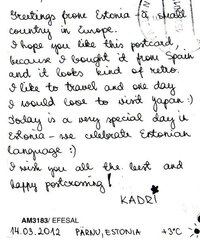 Greetings from Estonia - a small
country in Europe.
I hope you like this postcard,
because I bought it from Spain
and it looks kind of retro.
I like to travel and one day
I would love to visit Japan :)
Today is a very special day in
Estonia - we celebrate Estonian
language :)
I wish you all the best and
happy postcrossing!
KADRI
AM3183/ EFESAL
14.03.2012 PÄRNU, ESTONIA +3°C